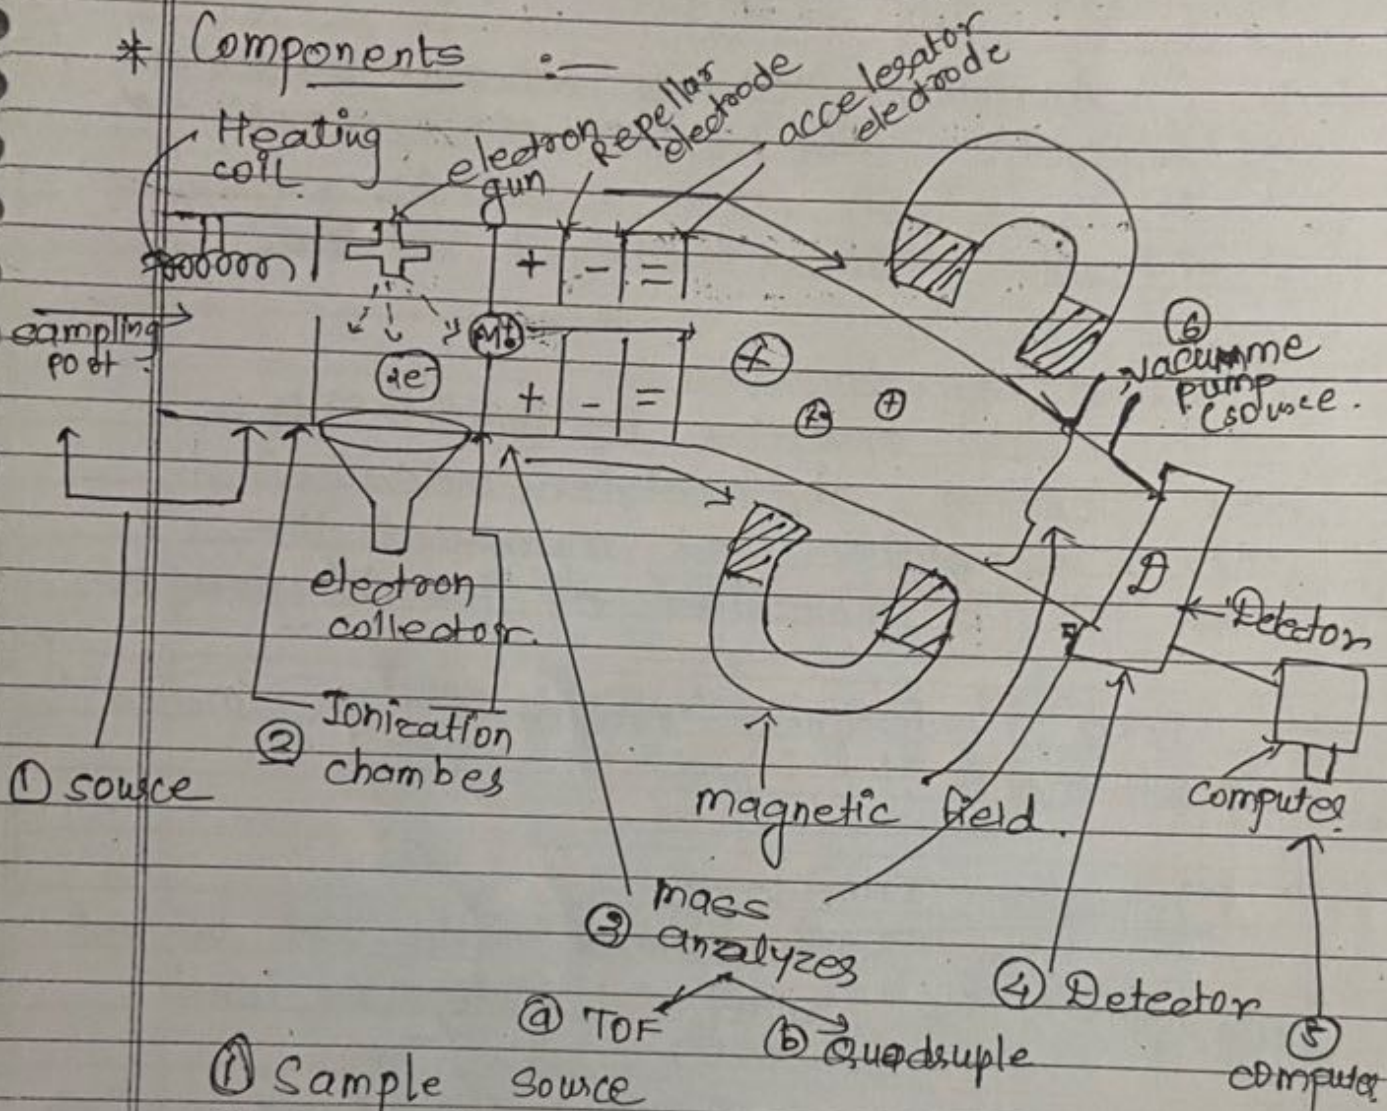 * Components :—
Heating
coil
electron
gun
Repellar
electrode
accelerator
electrode
sampling
port
+ - =
M+
2e-
+ - =
+
+
6
vacumme
pump
source.
electron
collector.
D
Detector
2 Ionization
chamber
1 source
magnetic field.
computer
3 mass
analyzer
a TOF
b Quadruple
4 Detector
5
computer
1 Sample source